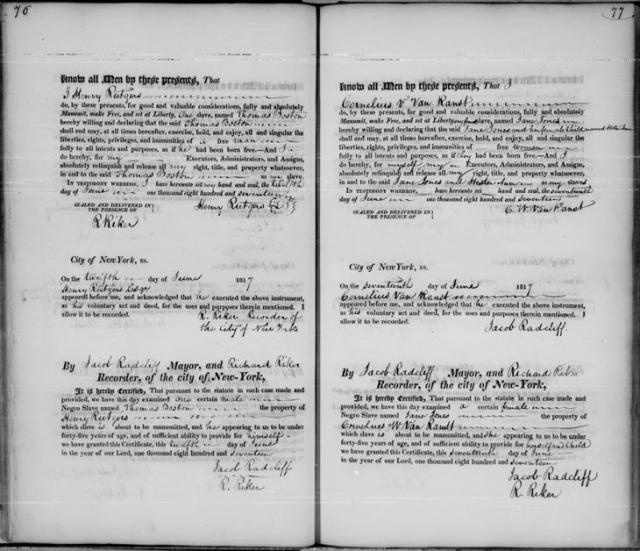 76
Know all Men by these presents, That
I Henry Rutgers
do, by these presents, for good and valuable considerations, fully and absolutely
Manumit, make Free, and set at Liberty, One slave, named Thomas Boston
hereby willing and declaring that the said Thomas Boston
shall and may, at all times hereafter, exercise, hold, and enjoy, all and singular the
liberties, rights, privileges, and immunities of a free man
fully to all intents and purposes, as if he had been born free.—And I
do hereby, for my Executors, Administrators, and Assigns,
absolutely relinquish and release all my right, title, and property whatsoever,
in and to the said Thomas Boston as my slave.
In Testimony whereof, I have hereunto set my hand and seal, the twelfth
day of June one thousand eight hundred and seventeen
SEALED AND DELIVERED IN
THE PRESENCE OF
Henry Rutgers
R Riker
City of New York, ss.
On the twelfth day of June 1817
Henry Rutgers Esqr
appeared before me, and acknowledged that he executed the above instrument,
as his voluntary act and deed, for the uses and purposes therein mentioned. I
allow it to be recorded.
R. Riker Recorder of
the City of New York
By Jacob Radcliff Mayor, and Richard Riker
Recorder, of the city of New-York,
It is hereby Certified, That pursuant to the statute in such case made and
provided, we have this day examined One certain male
Negro Slave named Thomas Boston the property of
Henry Rutgers
which slave is about to be manumitted, and he appearing to us to be under
forty-five years of age, and of sufficient ability to provide for himself
we have granted this Certificate, this twelfth day of June
in the year of our Lord, one thousand eight hundred and seventeen
Jacob Radcliff
R. Riker
77
Know all Men by these presents, That I
Cornelius W Van Ranst
do, by these presents, for good and valuable considerations, fully and absolutely
Manumit, make Free, and set at Liberty, my slave, named Jane Jones
hereby willing and declaring that the said Jane Jones and her female Child
shall and may, at all times hereafter, exercise, hold, and enjoy, all and singular the
liberties, rights, privileges, and immunities of a free woman
fully to all intents and purposes, as if they had been born free.—And I
do hereby, for myself my Executors, Administrators, and Assigns,
absolutely relinquish and release all my right, title, and property whatsoever,
in and to the said Jane Jones and Hester Ann as my slaves
In Testimony whereof, I have hereunto set hand and seal, the seventeenth
day of June one thousand eight hundred and seventeen
SEALED AND DELIVERED IN
THE PRESENCE OF
C. W. Van Ranst
City of New York, ss.
On the seventeenth day of June 1817
Cornelius Van Ranst
appeared before me, and acknowledged that he executed the above instrument,
as his voluntary act and deed, for the uses and purposes therein mentioned. I
allow it to be recorded.
Jacob Radcliff
By Jacob Radcliff Mayor, and Richard Riker
Recorder, of the city of New-York,
It is hereby Certified, That pursuant to the statute in such case made and
provided, we have this day examined a certain female
Negro Slave named Jane Jones the property of
Cornelius W Van Ranst
which slave is about to be manumitted, and she appearing to us to be under
forty-five years of age, and of sufficient ability to provide for herself and Child
we have granted this Certificate, this seventeenth day of June
in the year of our Lord, one thousand eight hundred and seventeen
Jacob Radcliff
R. Riker